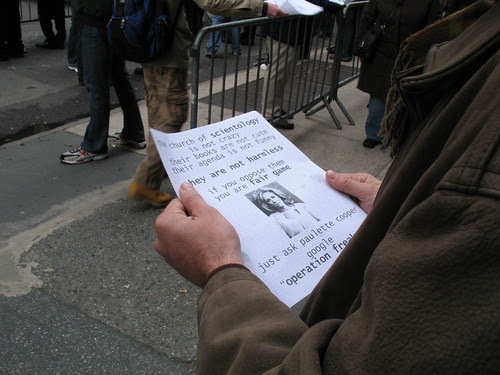 church of scientology
is not crazy
their books are not cute
their agenda is not funny
hey are not harmless
if you oppose them
you are fair game
just ask paulette cooper
google
"operation frea